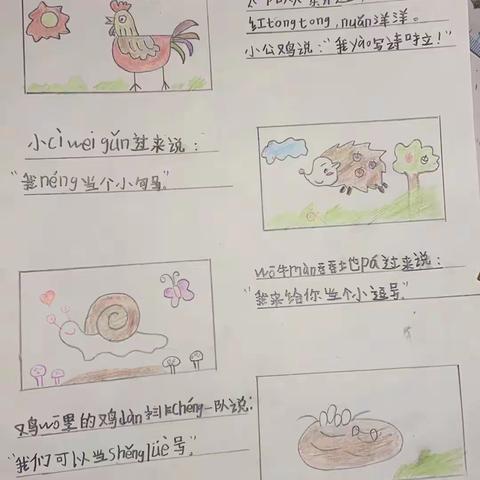 红tongtong,nuǎn洋洋。
小公鸡说:“我yào写诗啦!”
小cì wei gǔn过来说:
“我néng当个小句号。”
wō牛màn吞吞地pá过来说:
“我来给你当个小逗号。”
鸡wō里的鸡dàn排chéng一队说:
“我们可以当shěnglüè号。”